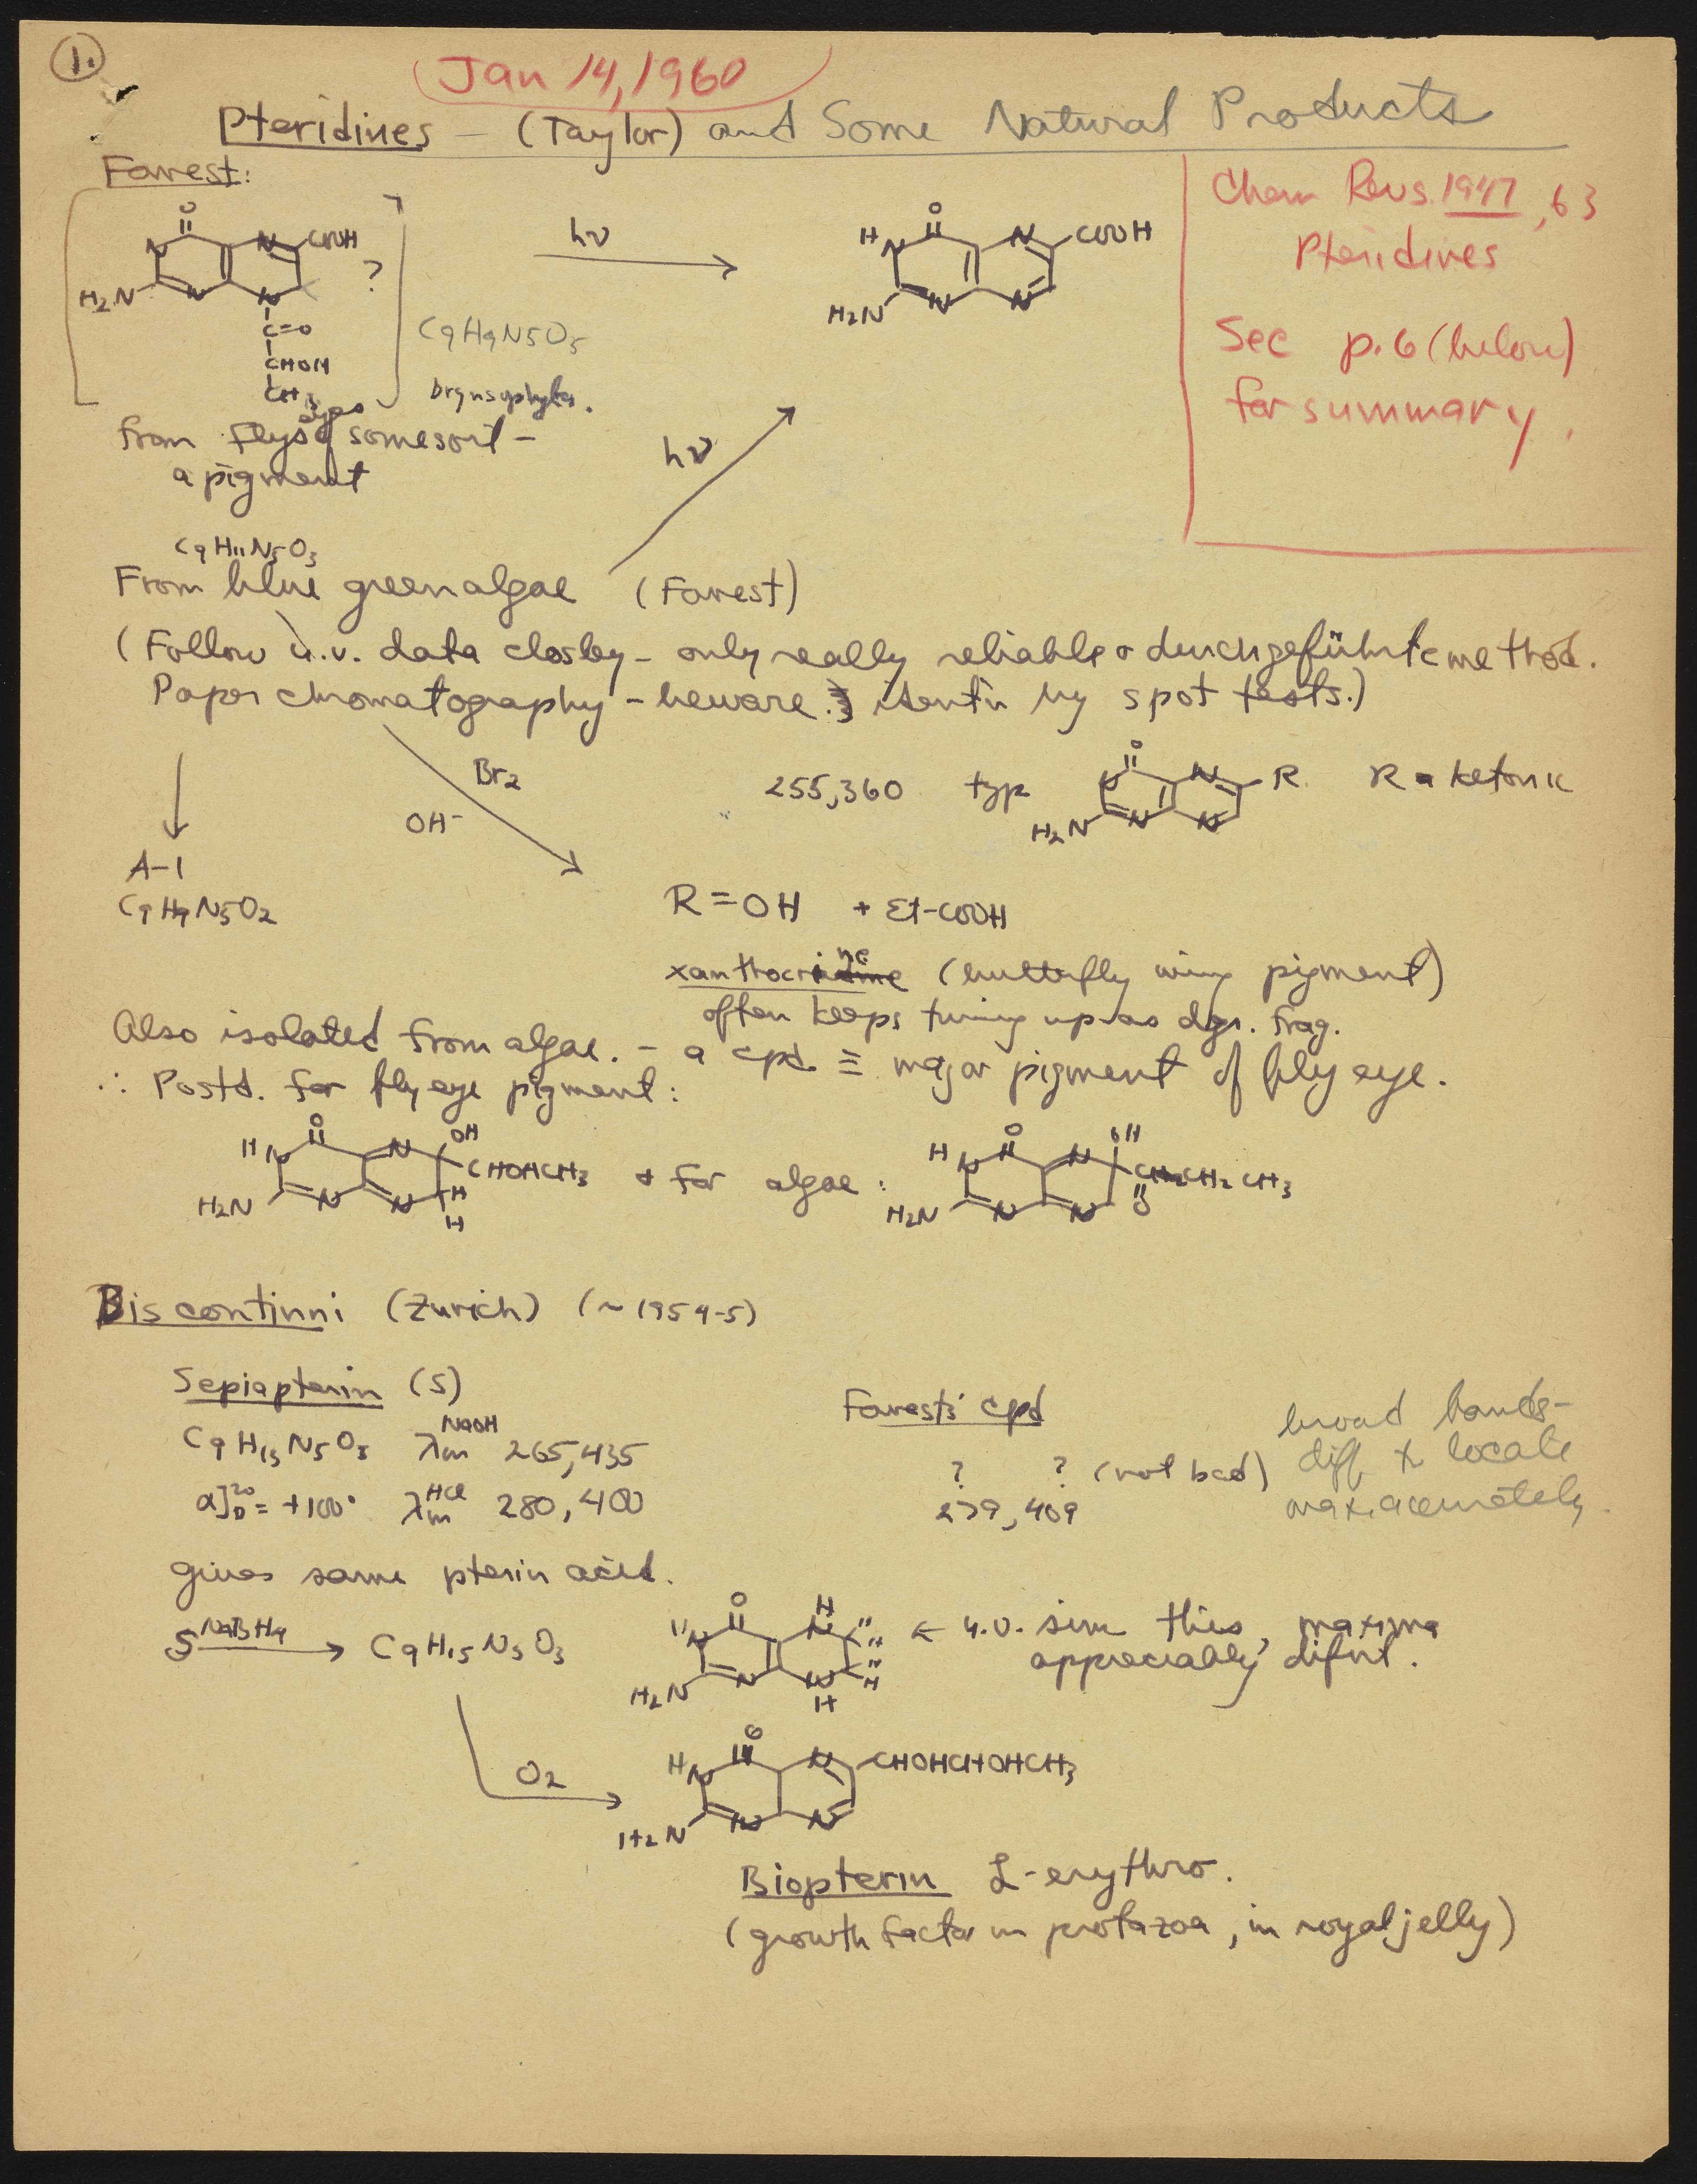 1.
Jan 14, 1960
Pteridines – (Taylor) and Some Natural Products
Forrest:
Chem Revs. 1947, 63
Pteridines
See p. 6 (below)
for summary.
O
N
N
COOH
?
H2N
N
N
C=O
CHOH
CH3
C9H9N5O5
hν
O
H
N
N
COOH
H2N
N
N
eyes
from flys of some sort –
a pigment
hν
C9H11N5O3
From blue green algae (Forrest)
(Follow u.v. data closley – only really reliable & durchgeführte method.
Paper chromatography – beware. ident'n by spot tests.)
Br2
OH-
255, 360 typ
O
N
R
H2N
N
N
R = ketonic
A-1
C9H9N5O2
R = OH + Et-COOH
(butterfly wing pigment)
often keeps turning up as dgr. frag.
Also isolated from algae. – a cpd. ≡ major pigment of fly eye.
∴ Postd. for fly eye pigment:
H
N
O
N
OH
CHOHCH3
H2N
N
N
H
H
& for algae:
H
N
O
N
OH
CH2CH3
O
H2N
N
N
Biscontinni (Zurich) (~1954-5)
Sepiapterin (S)
C9H13N5O3 λm NaOH 265, 435
α]D20 = +100° λm HCl 280, 400
Forrest's cpd
? ? (not bad)
279, 409
broad bands –
diff to locate
max. accurately.
gives same pterin acid.
S NaBH4 → C9H15N5O3
H
N
O
H
N
H
H
H2N
N
N
H
H
H
← u.v. sim this, maxima
appreciably difnt.
O2
H
N
O
N
CHOHCHOHCH3
H2N
N
N
Biopterin L-erythro.
(growth factor in protazoa, in royal jelly)